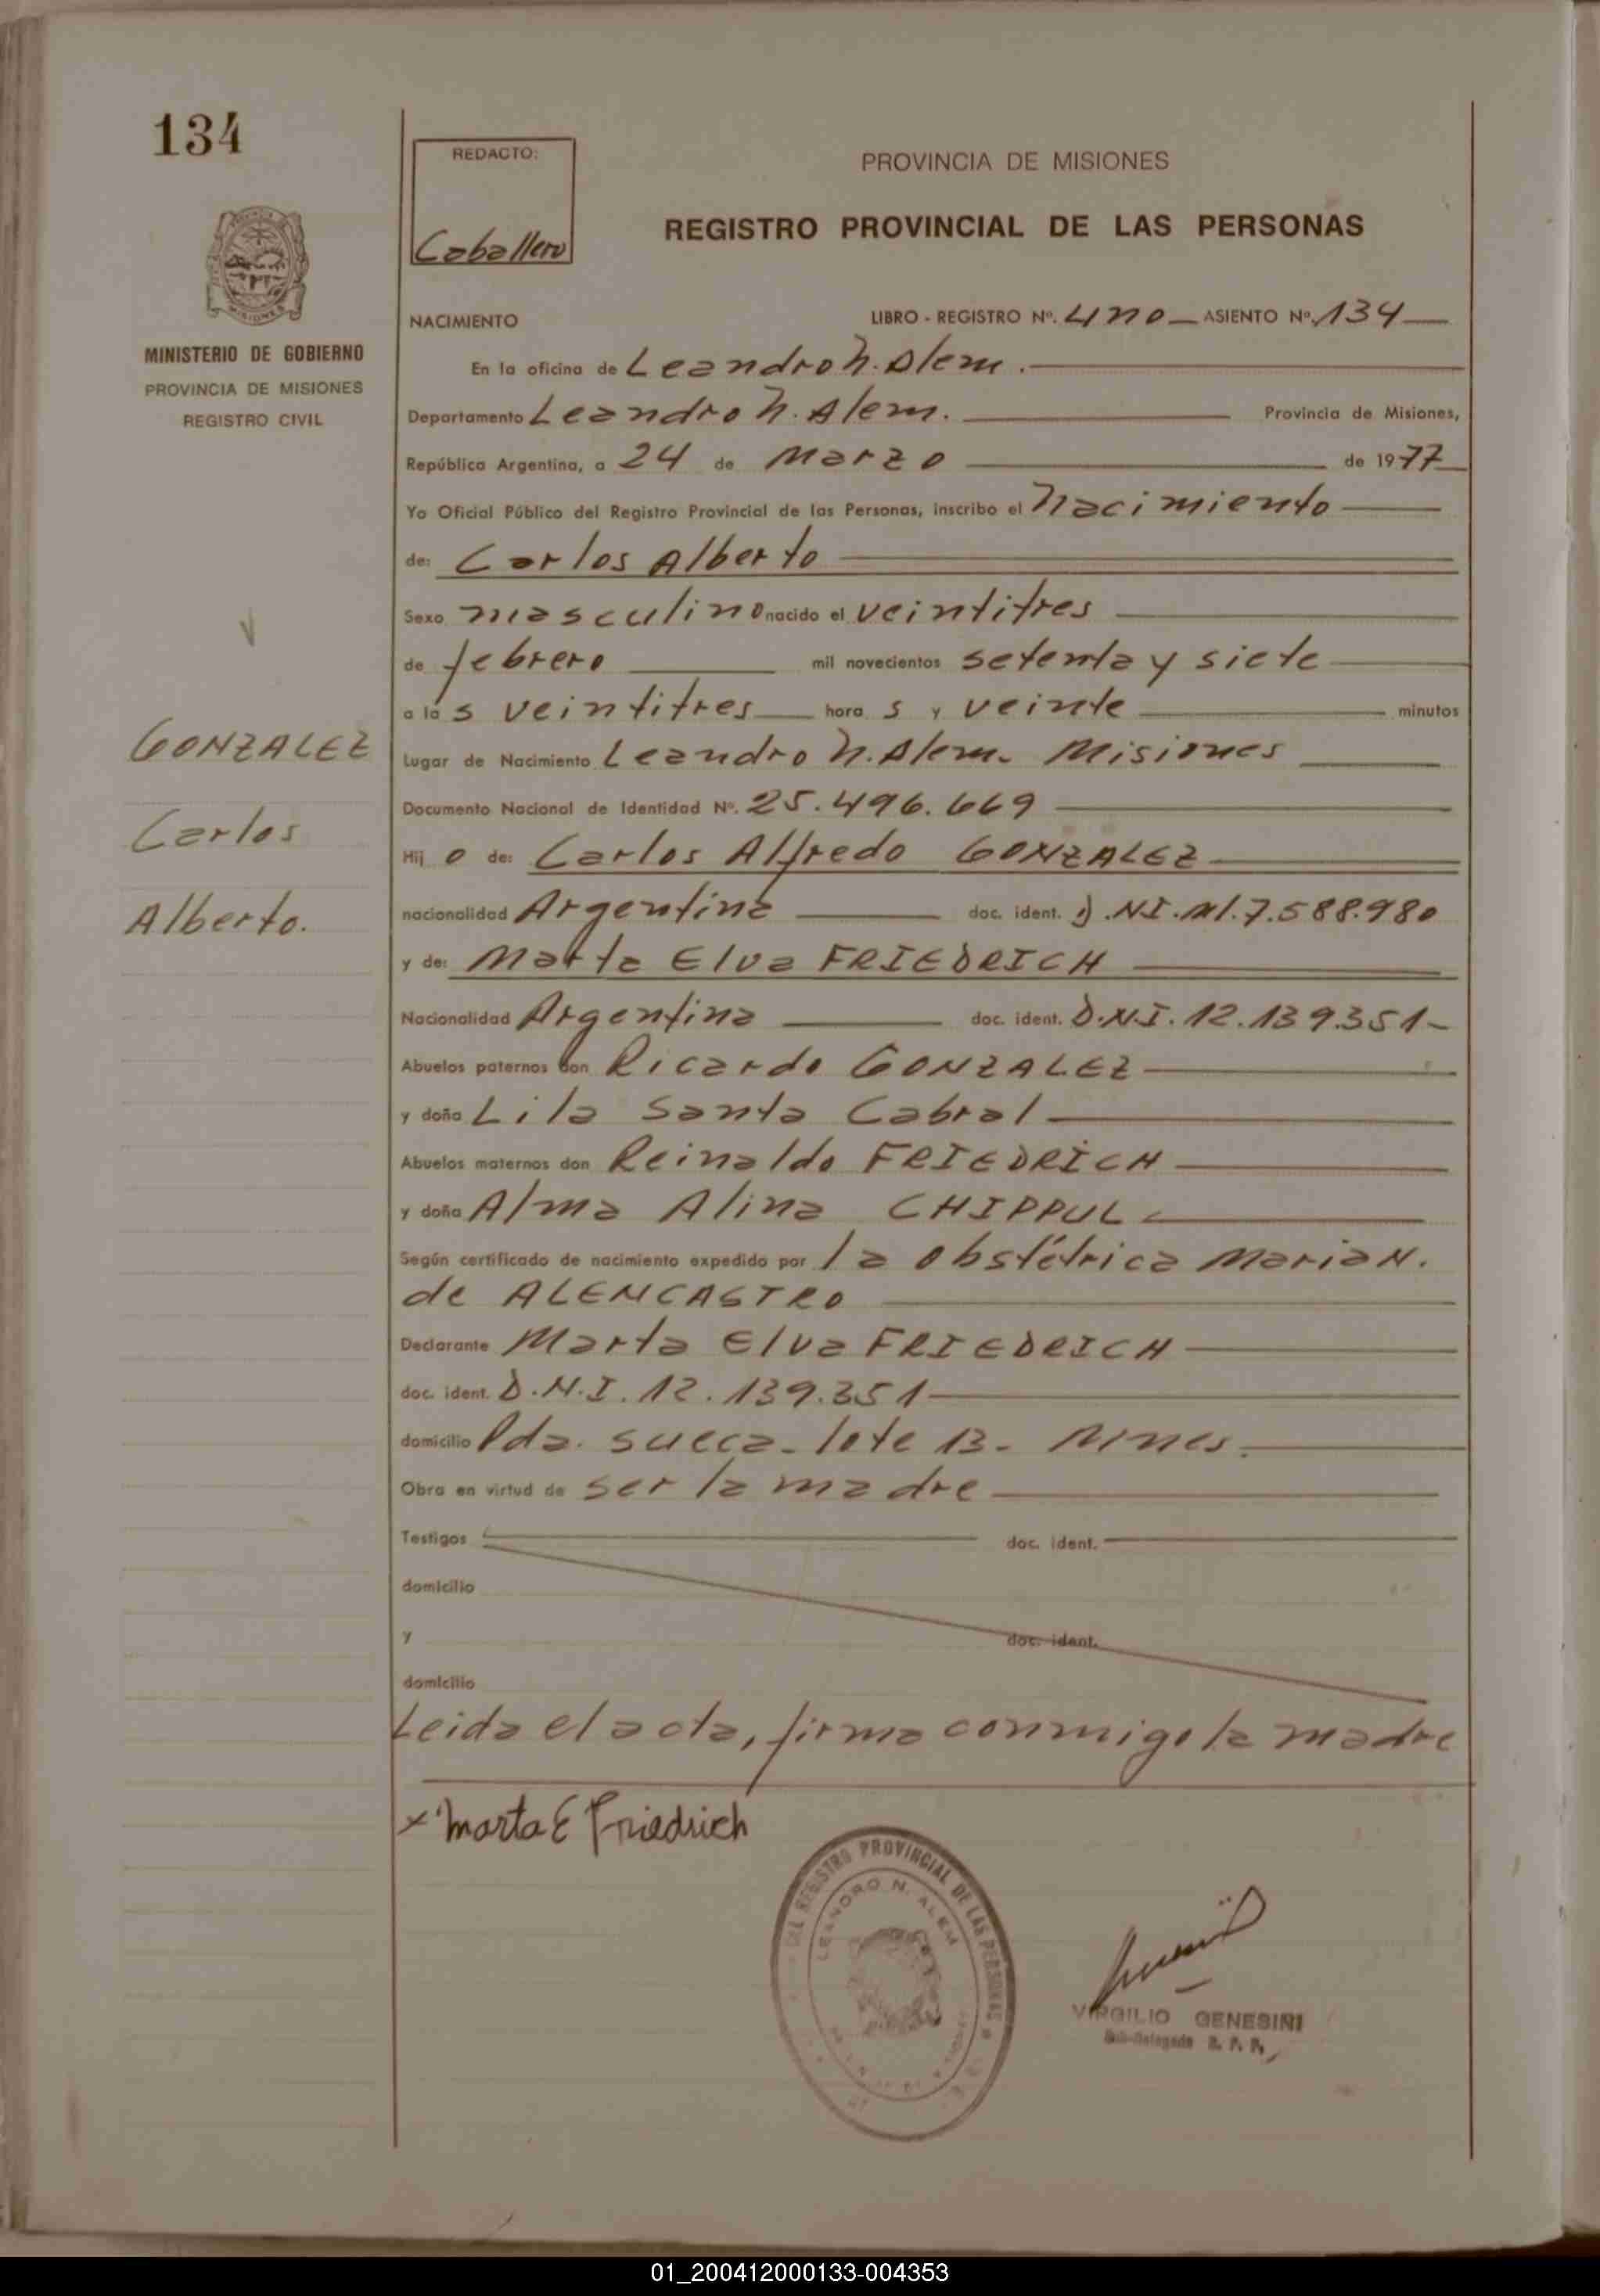 134
REDACTO:
Caballero
PROVINCIA DE MISIONES
REGISTRO PROVINCIAL DE LAS PERSONAS
MINISTERIO DE GOBIERNO
PROVINCIA DE MISIONES
REGISTRO CIVIL
NACIMIENTO LIBRO - REGISTRO Nº. uno ASIENTO Nº. 134
En la oficina de Leandro N. Alem.
Departamento Leandro N. Alem. Provincia de Misiones,
República Argentina, a 24 de Marzo de 1977
Yo Oficial Público del Registro Provincial de las Personas, inscribo el Nacimiento
de: Carlos Alberto
Sexo masculino nacido el veintitres
de febrero mil novecientos setenta y siete
a las veintitres hora s y veinte minutos
Lugar de Nacimiento Leandro N. Alem. Misiones
Documento Nacional de Identidad Nº. 25.496.669
Hij o de: Carlos Alfredo GONZALEZ
nacionalidad Argentina doc. ident. D.N.I. M. 7.588.980
y de: Marta Elva FRIEDRICH
Nacionalidad Argentina doc. ident. D.N.I. 12.139.351-
Abuelos paternos don Ricardo GONZALEZ
y doña Lila Santa Cabral
Abuelos maternos don Reinaldo FRIEDRICH
y doña Alma Alina CHIPPUL
Según certificado de nacimiento expedido por la obstétrica Maria N.
de ALENCASTRO
Declarante Marta Elva FRIEDRICH
doc. ident. D.N.I. 12.139.351
domicilio Pda. sueca - lote 13 -
Obra en virtud de ser la madre
Testigos doc. ident.
domicilio
y doc. ident.
domicilio
Leida el acta, firma conmigo la madre
x Marta E Friedrich
GONZALEZ
Carlos
Alberto.
DEL REGISTRO PROVINCIAL DE LAS PERSONAS
LEANDRO N. ALEM
VIRGILIO GENESINI
Sub-Delegado R. P. P.
01_200412000133-004353